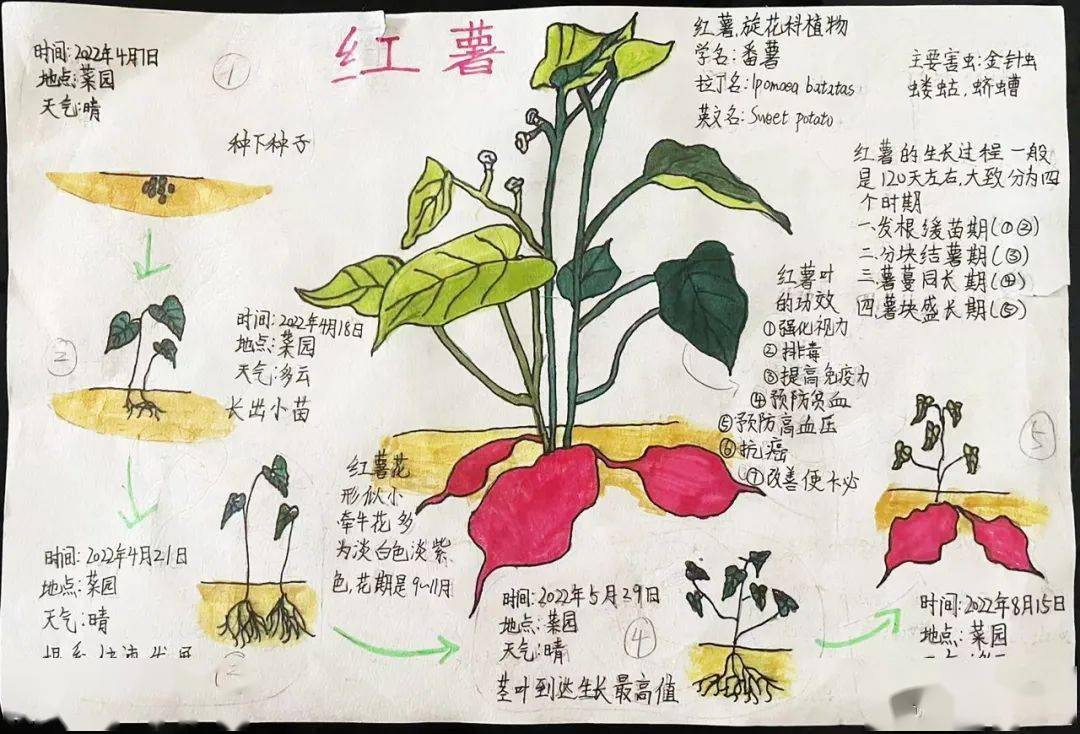 红薯
时间:2022年4月1日
地点:菜园
天气:晴
①
种下种子
②
时间:2022年4月18日
地点:菜园
天气:多云
长出小苗
时间:2022年4月21日
地点:菜园
天气:晴
红薯花
形似小
牵牛花多
为淡白色淡紫
色,花期是9~11月
时间:2022年5月29日
地点:菜园
天气:晴
④
茎叶到达生长最高值
红薯,旋花科植物
学名:番薯
拉丁名:Ipomoea batatas
英文名:Sweet potato
主要害虫:金针虫
蝼蛄,蛴螬
红薯的生长过程一般
是120天左右,大致分为四
个时期
一.发根缓苗期(①②)
二.分块结薯期(③)
三.薯蔓同长期(④)
四.薯块盛长期(⑤)
红薯叶
的功效
①强化视力
②排毒
③提高免疫力
④预防贫血
⑤预防高血压
⑥抗癌
⑦改善便卡必
⑤
时间:2022年8月15日
地点:菜园